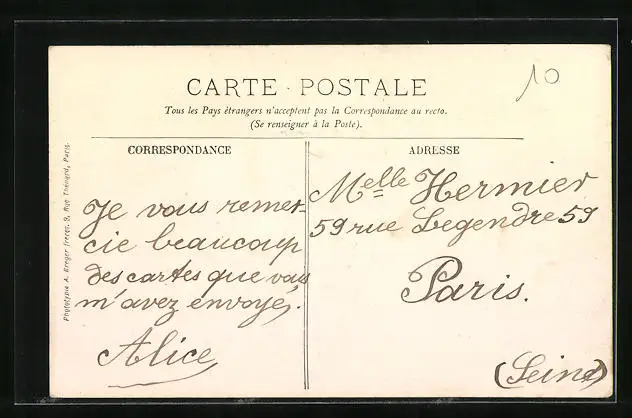 10
CARTE POSTALE
Tous les Pays étrangers n'acceptent pas la Correspondance au recto.
(Se renseigner à la Poste).
CORRESPONDANCE
Je vous remer-
cie beaucoup
des cartes que vous
m'avez envoyes.
Alice
ADRESSE
Melle Hermier
59 rue Legendre 59
Paris.
(Seine)
Phototypie A. Breger frères, 9, Rue Thénard, Paris.